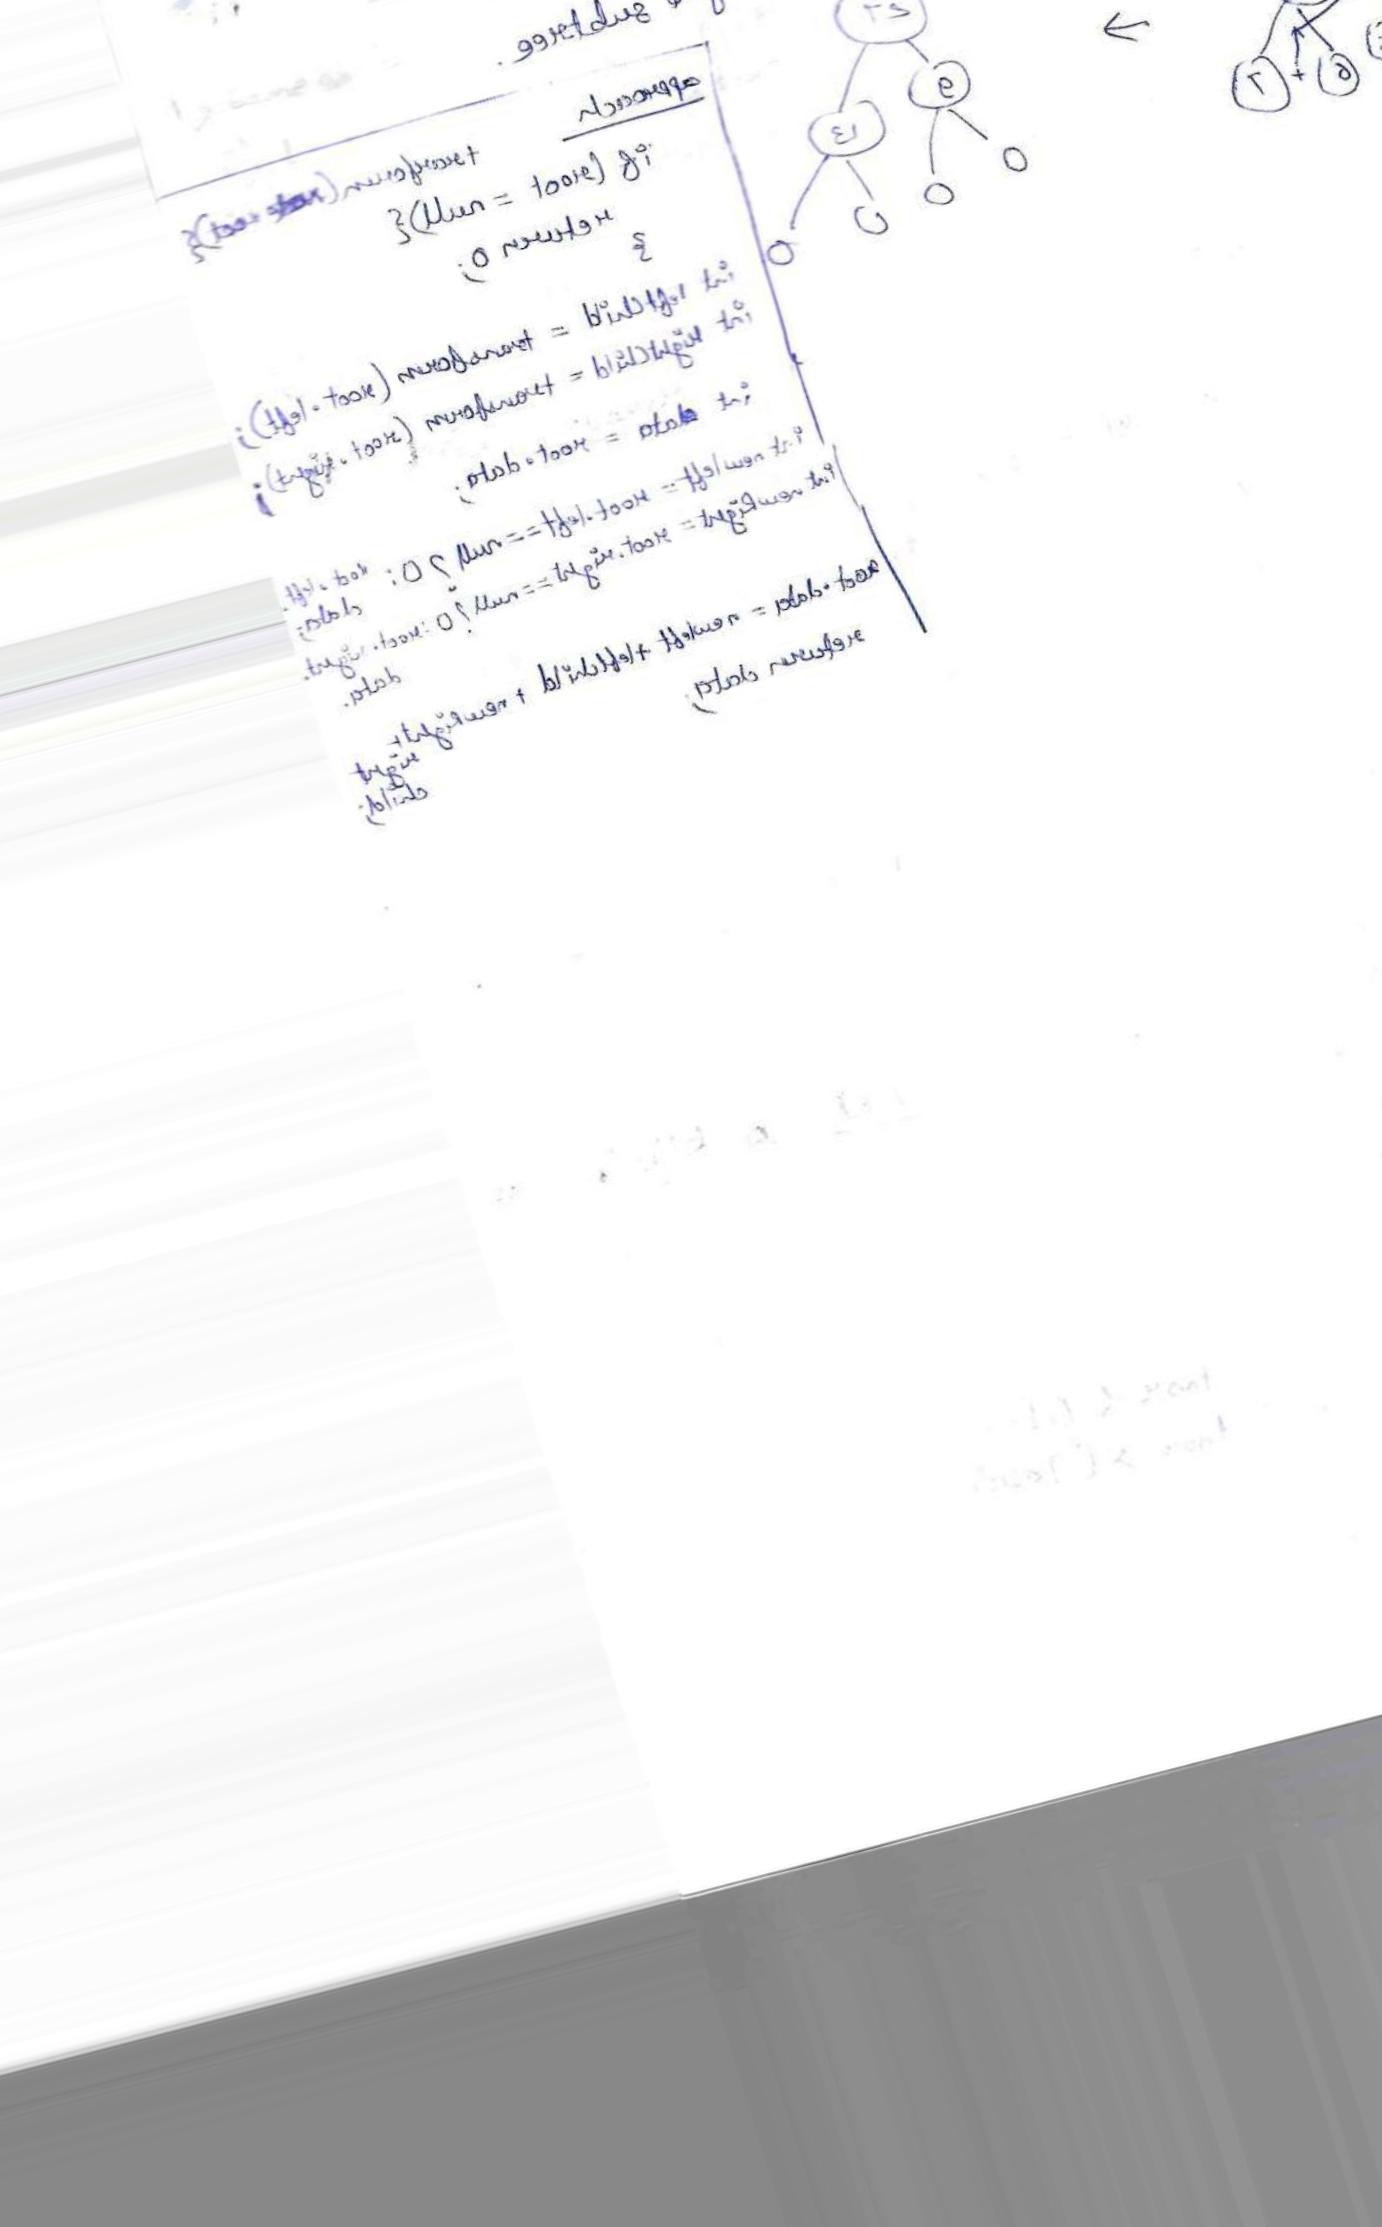 subtree.
approach
transform(root){
if (root = null){
return 0;
}
int leftChild = transform (root.left);
int RightChild = transform (root.right);
int data = root.data;
int newleft = root.left == null ? 0 : root.left.
data;
int newRight = root.right == null ? 0 : root.right.
data.
root.data = newleft + leftchild + newRight +
right
child;
return data;
27
13
9
0
0
0
0
←
7 + 6